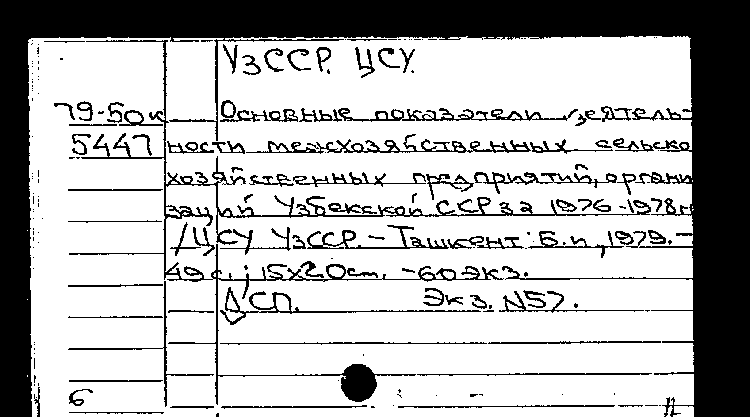 УзССР. ЦСУ.
79-50к Основные показатели деятель-
5447 ности межхозяйственных сельско
хозяйственных предприятий, органи
заций Узбекской ССР за 1976-1978 г
/ЦСУ УзССР. - Ташкент: Б.и., 1979. -
49 с.; 15х20 cm. - 60 экз.
ДСП. Экз. N57.
6